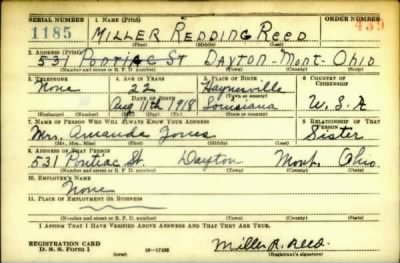 SERIAL NUMBER 1. NAME (Print) ORDER NUMBER
1185 MILLER REDDING REED 439
(First) (Middle) (Last)
2. ADDRESS (Print)
531 PONTIAC ST DAYTON-MONT-OHIO
(Number and street or R. F. D. number) (Town) (County) (State)
3. TELEPHONE 4. AGE IN YEARS 5. PLACE OF BIRTH 6. COUNTRY OF CITIZENSHIP
None 22 Haynesville
DATE OF BIRTH (Town or county)
Aug 11th 1918 Louisiana U.S.A
(Exchange) (Number) (Mo.) (Day) (Yr.) (State or country)
7. NAME OF PERSON WHO WILL ALWAYS KNOW YOUR ADDRESS 8. RELATIONSHIP OF THAT PERSON
Mrs. Amanda Jones Sister
(Mr., Mrs., Miss) (First) (Middle) (Last)
9. ADDRESS OF THAT PERSON
531 Pontiac St. Dayton Mont. Ohio.
(Number and street or R. F. D. number) (Town) (County) (State)
10. EMPLOYER'S NAME
None
11. PLACE OF EMPLOYMENT OR BUSINESS
(Number and street or R. F. D. number) (Town) (County) (State)
I AFFIRM THAT I HAVE VERIFIED ABOVE ANSWERS AND THAT THEY ARE TRUE.
REGISTRATION CARD
D. S. S. Form 1 (over) Miller R. Reed.
(Registrant's signature)